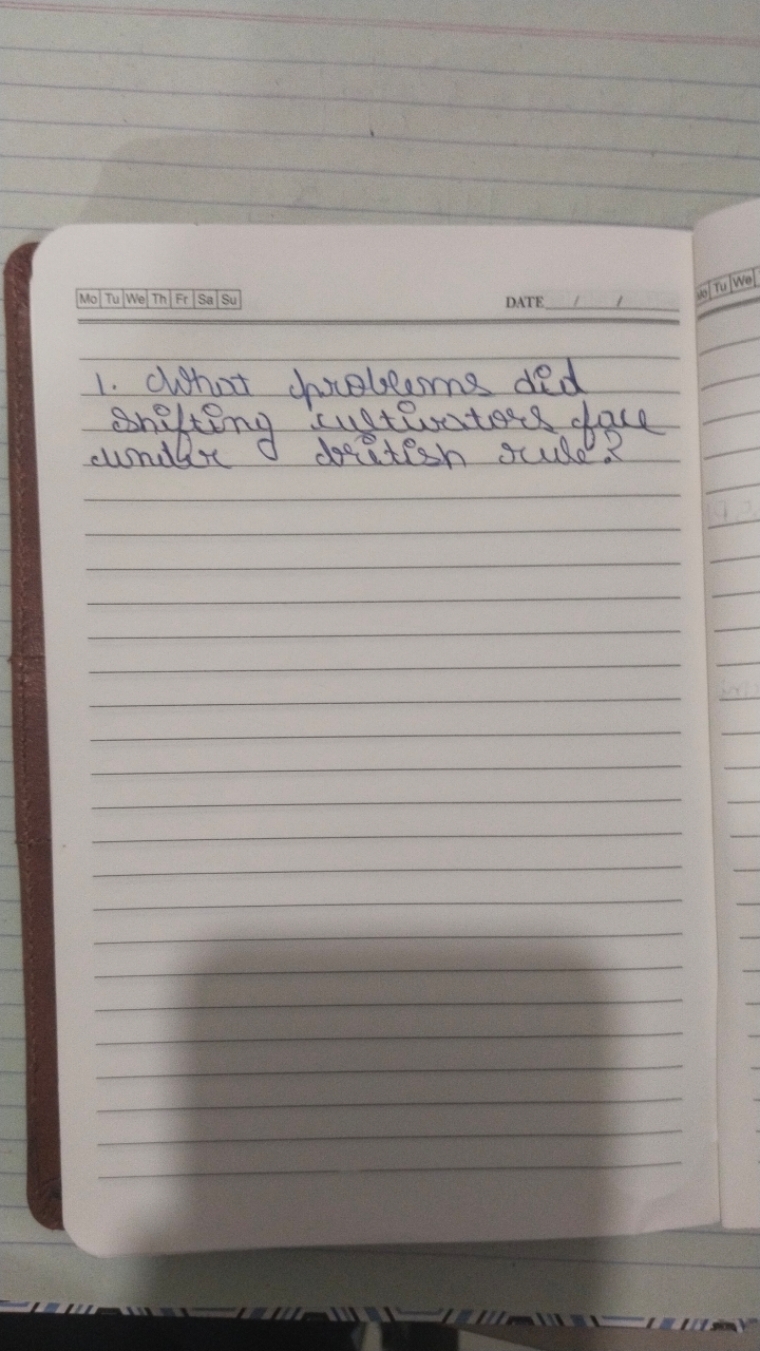 Mo Tu We Th Fr Sa Su
DATE / /
1. What problems did
shifting cultivators face
under british rule?
Tu We